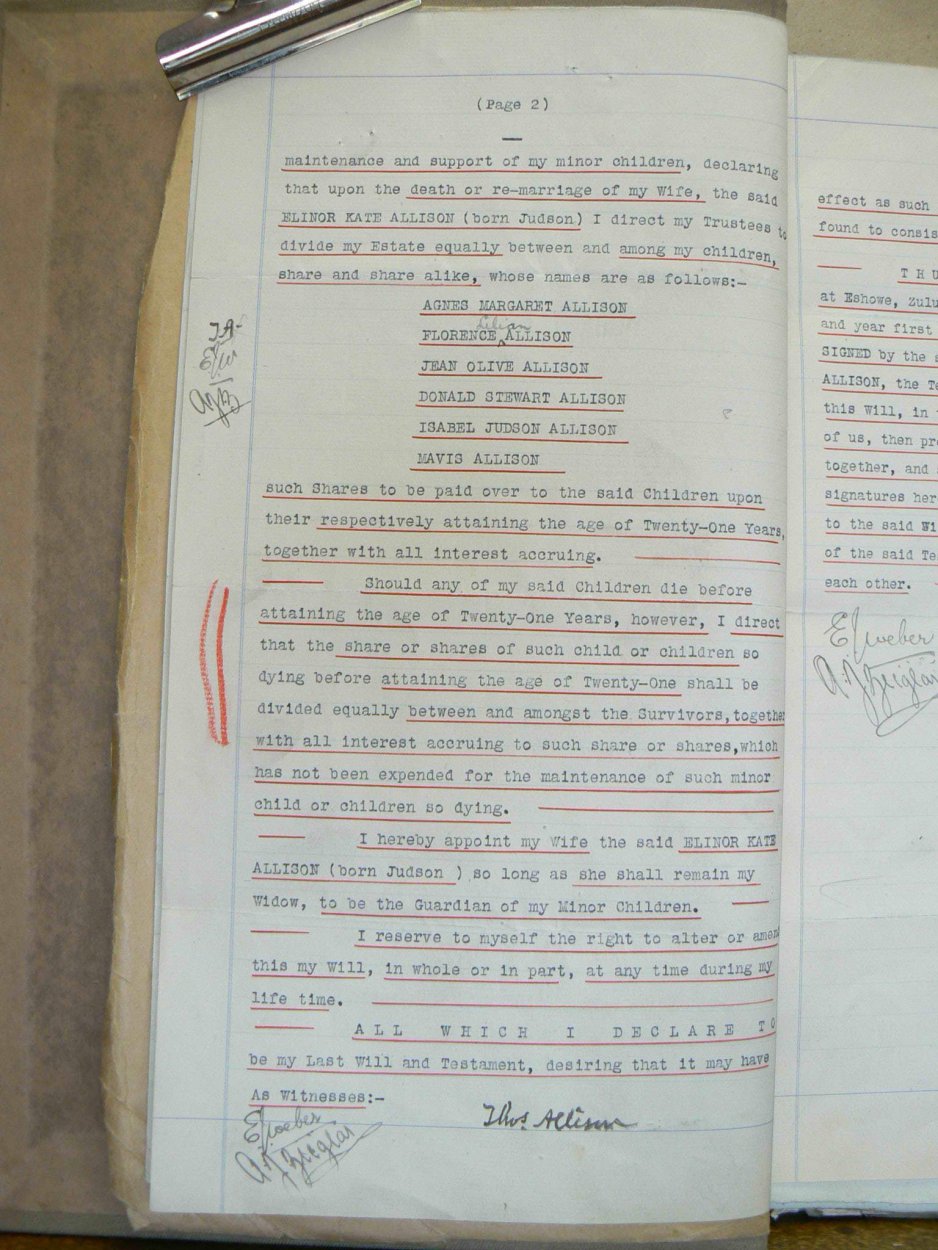 (Page 2)
maintenance and support of my minor children, declaring
that upon the death or re-marriage of my Wife, the said
ELINOR KATE ALLISON (born Judson) I direct my Trustees to
divide my Estate equally between and among my children,
share and share alike, whose names are as follows:-
AGNES MARGARET ALLISON
Lilian
FLORENCE ALLISON
JEAN OLIVE ALLISON
DONALD STEWART ALLISON
ISABEL JUDSON ALLISON
MAVIS ALLISON
such Shares to be paid over to the said Children upon
their respectively attaining the age of Twenty-One Years,
together with all interest accruing.
Should any of my said Children die before
attaining the age of Twenty-One Years, however, I direct
that the share or shares of such child or children so
dying before attaining the age of Twenty-One shall be
divided equally between and amongst the Survivors,together
with all interest accruing to such share or shares,which
has not been expended for the maintenance of such minor
child or children so dying.
I hereby appoint my Wife the said ELINOR KATE
ALLISON (born Judson ) so long as she shall remain my
Widow, to be the Guardian of my Minor Children.
I reserve to myself the right to alter or amend
this my Will, in whole or in part, at any time during my
life time.
ALL WHICH I DECLARE TO
be my Last Will and Testament, desiring that it may have
As Witnesses:-
Thos. Allison
T.A.
effect as such
found to consis
THU
at Eshowe, Zulu
and year first
SIGNED by the s
ALLISON, the Te
this Will, in
of us, then pre
together, and
signatures her
to the said Wi
of the said Te
each other.